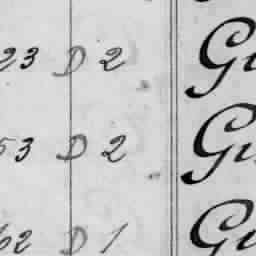 23 D 2 Gu
53 D 2 Gu
62 D 1 Gu